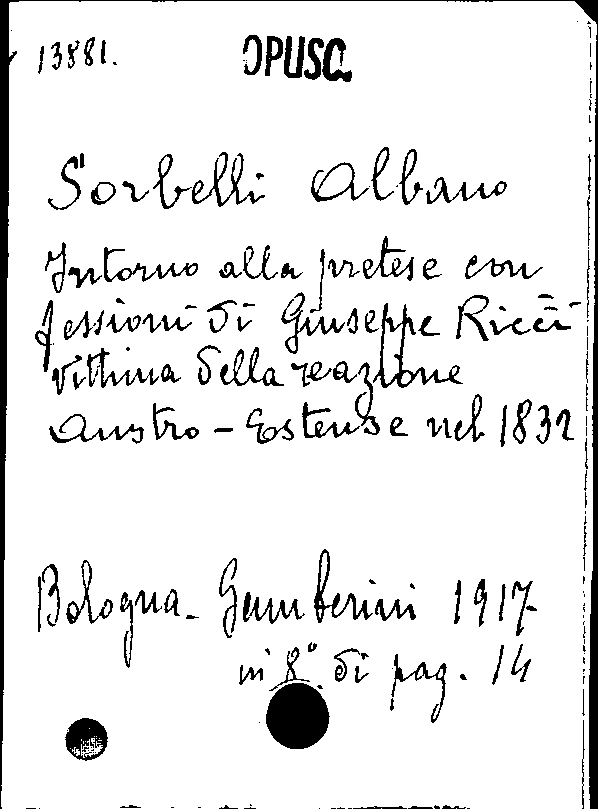 13881. OPUSC.
Sorbelli Albano
Intorno alla pretese con
fessioni di Giuseppe Ricci
vittima della reazione
Austro-Estense nel 1832
Bologna - Gamberini 1917
in 8° di pag. 14